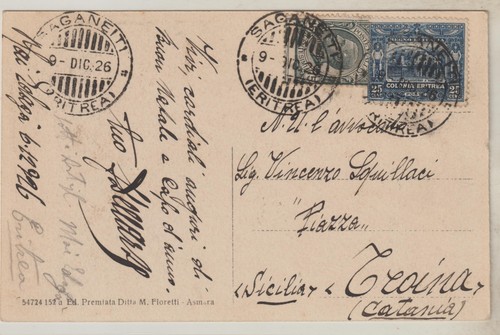 SAGANEITI
9 - DIC. 26
(ERITREA)
SAGANEITI
9 - DIC. 26
(ERITREA)
COLONIA ERITREA
25
25
Vivi cordiali auguri di
Buon Natale e Capo d'anno.
tuo
6.12.926
Eritrea
54724 152 a Ed. Premiata Ditta M. Fioretti - Asmara
A. U. l'avvocato
Sg. Vincenzo Squillaci
Piazza
(Sicilia) Troina
(Catania)